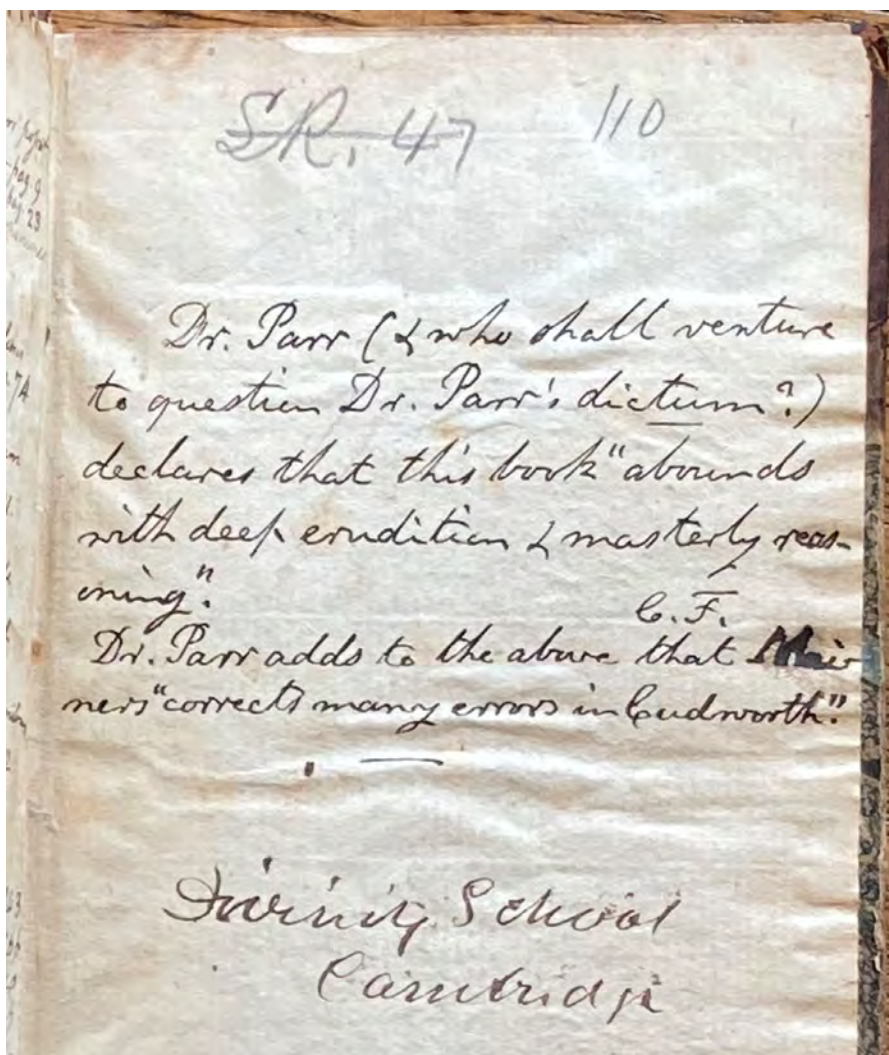 SR. 47 110
Dr. Parr (& who shall venture
to question Dr. Parr's dictum?)
declares that this book "abounds
with deep erudition & masterly reas-
oning".
C. F.
Dr. Parr adds to the above that Mei
ners "corrects many errors in Cudworth."
Divinity School
Cambridge
pag. 9
pag. 23
74